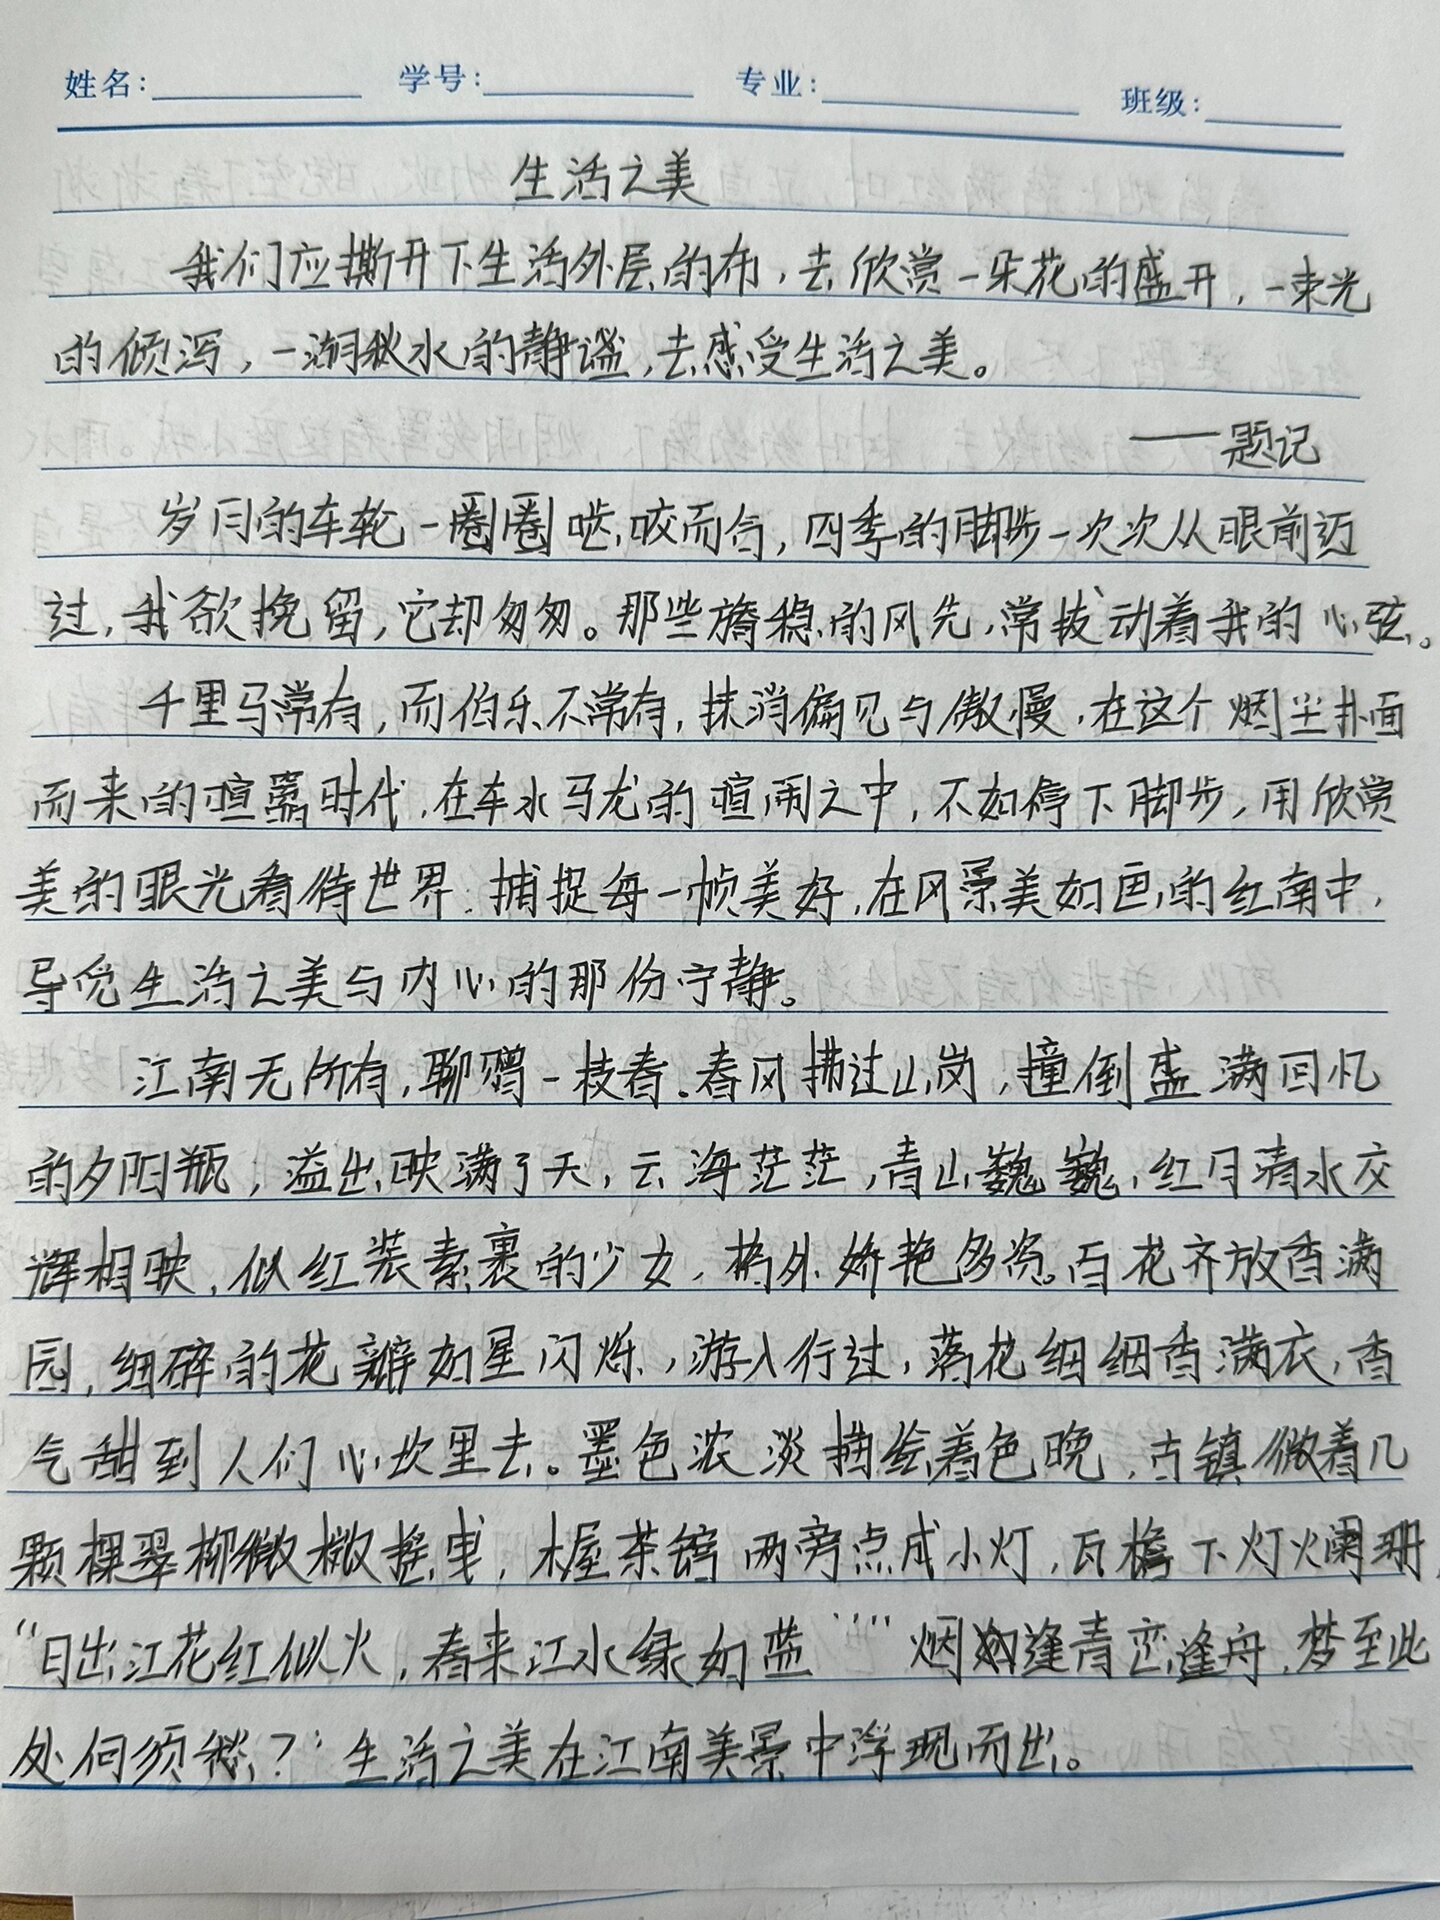 姓名： 学号： 专业： 班级：
生活之美
我们应撕开下生活外层的布，去欣赏一朵花的盛开，一束光
的倾泻，一湖秋水的静谧，去感受生活之美。
——题记
岁月的车轮一圈圈 而 ，四季的脚步一次次从眼前迈
过，我欲挽留，它却匆匆。那些 稳的风光，常拨动着我的心弦。
千里马常有，而伯乐不常有，抹消偏见与傲慢，在这个烟尘扑面
而来的喧嚣时代，在车水马龙的喧闹之中，不如停下脚步，用欣赏
美的眼光看待世界，捕捉每一帧美好，在风景美如画的江南中，
寻觅生活之美与内心的那份宁静。
江南无所有，聊赠一枝春。春风拂过山岗，撞倒盛满回忆
的夕阳瓶，溢出映满了天，云海茫茫，青山巍巍，红日清水交
辉相映，似红装素裹的少女，格外娇艳多姿。百花齐放香满
园，细碎的花瓣如星闪烁，游人行过，落花细细香满衣，香
气甜到人们心坎里去。墨色浓淡描绘着色晚，古镇 着几
颗棵翠柳微微摇曳，木屋茶馆两旁点成小灯，瓦檐下灯火阑珊，
“日出江花红似火，春来江水绿如蓝”“烟 逢青 逢舟，梦至此
处何须愁？”生活之美在江南美景中浮现而出。